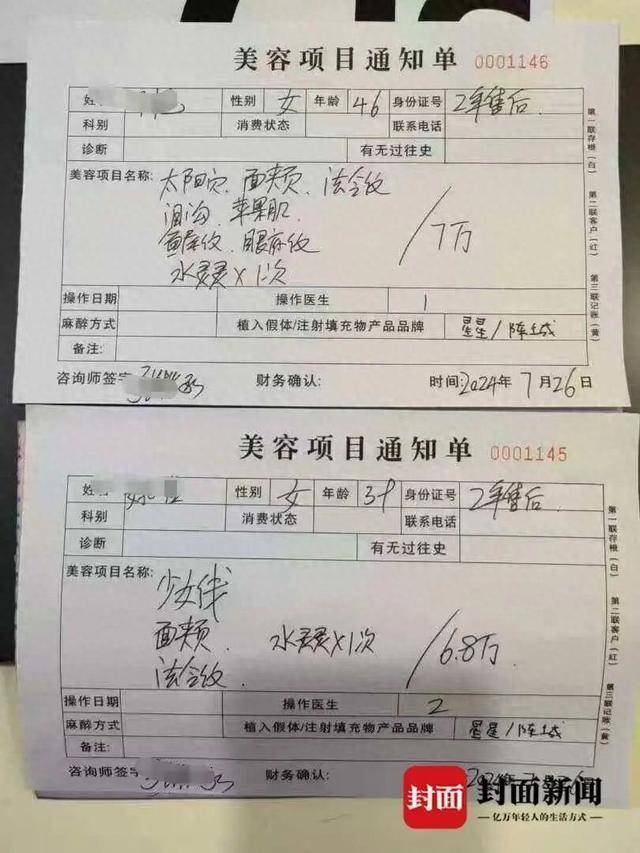 美容项目通知单 0001146
姓 性别 女 年龄 46 身份证号 2年售后
科别 消费状态 联系电话
诊断 有无过往史
美容项目名称: 太阳穴、面颊、法令纹
泪沟、苹果肌
鱼尾纹、眼底纹 /7万
水灵灵×1次
操作日期 操作医生 1
麻醉方式 植入假体/注射填充物产品品牌 星星/陈城
备注:
咨询师签字 财务确认: 时间:2024年7月26日
第一联存根(白)
第二联客户(红)
第三联记账(黄)
美容项目通知单 0001145
姓 性别 女 年龄 39 身份证号 2年售后
科别 消费状态 联系电话
诊断 有无过往史
美容项目名称:
少女线
面颊、 水灵灵×1次 /6.8万
法令纹
操作日期 操作医生 2
麻醉方式 植入假体/注射填充物产品品牌 星星/陈城
备注:
咨询师签字 财务确认: 2024年7
第一联存根(白)
第二联客户(红)
第三联记账(黄)
封面 封面新闻
—亿万年轻人的生活方式—